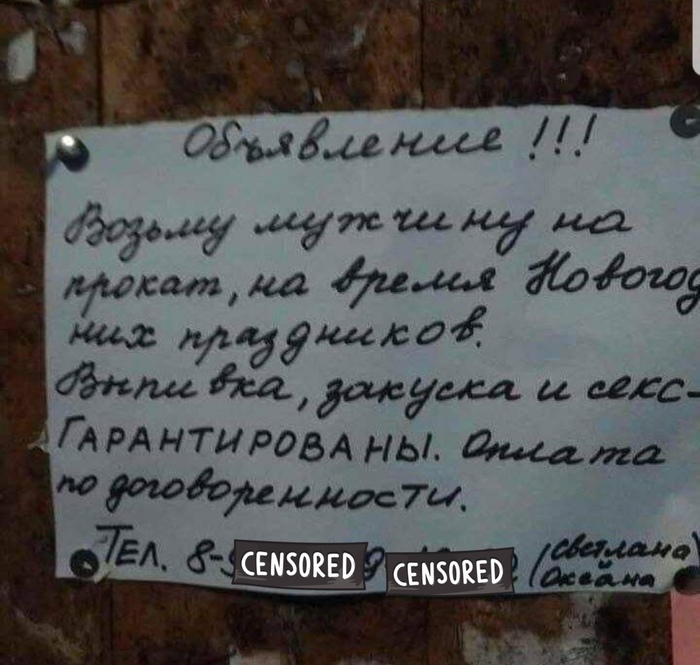 Объявление !!!
Возьму мужчину на
прокат, на время Новогод
них праздников.
Выпивка, закуска и секс-
ГАРАНТИРОВАНЫ. Оплата
по договоренности.
ТЕЛ. 8-9 CENSORED CENSORED (Светлана)
(Оксана